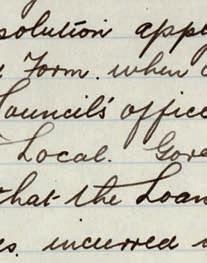 solution appr
Form. when
Council's office
Local. Gove
that the Loan
es. incurred